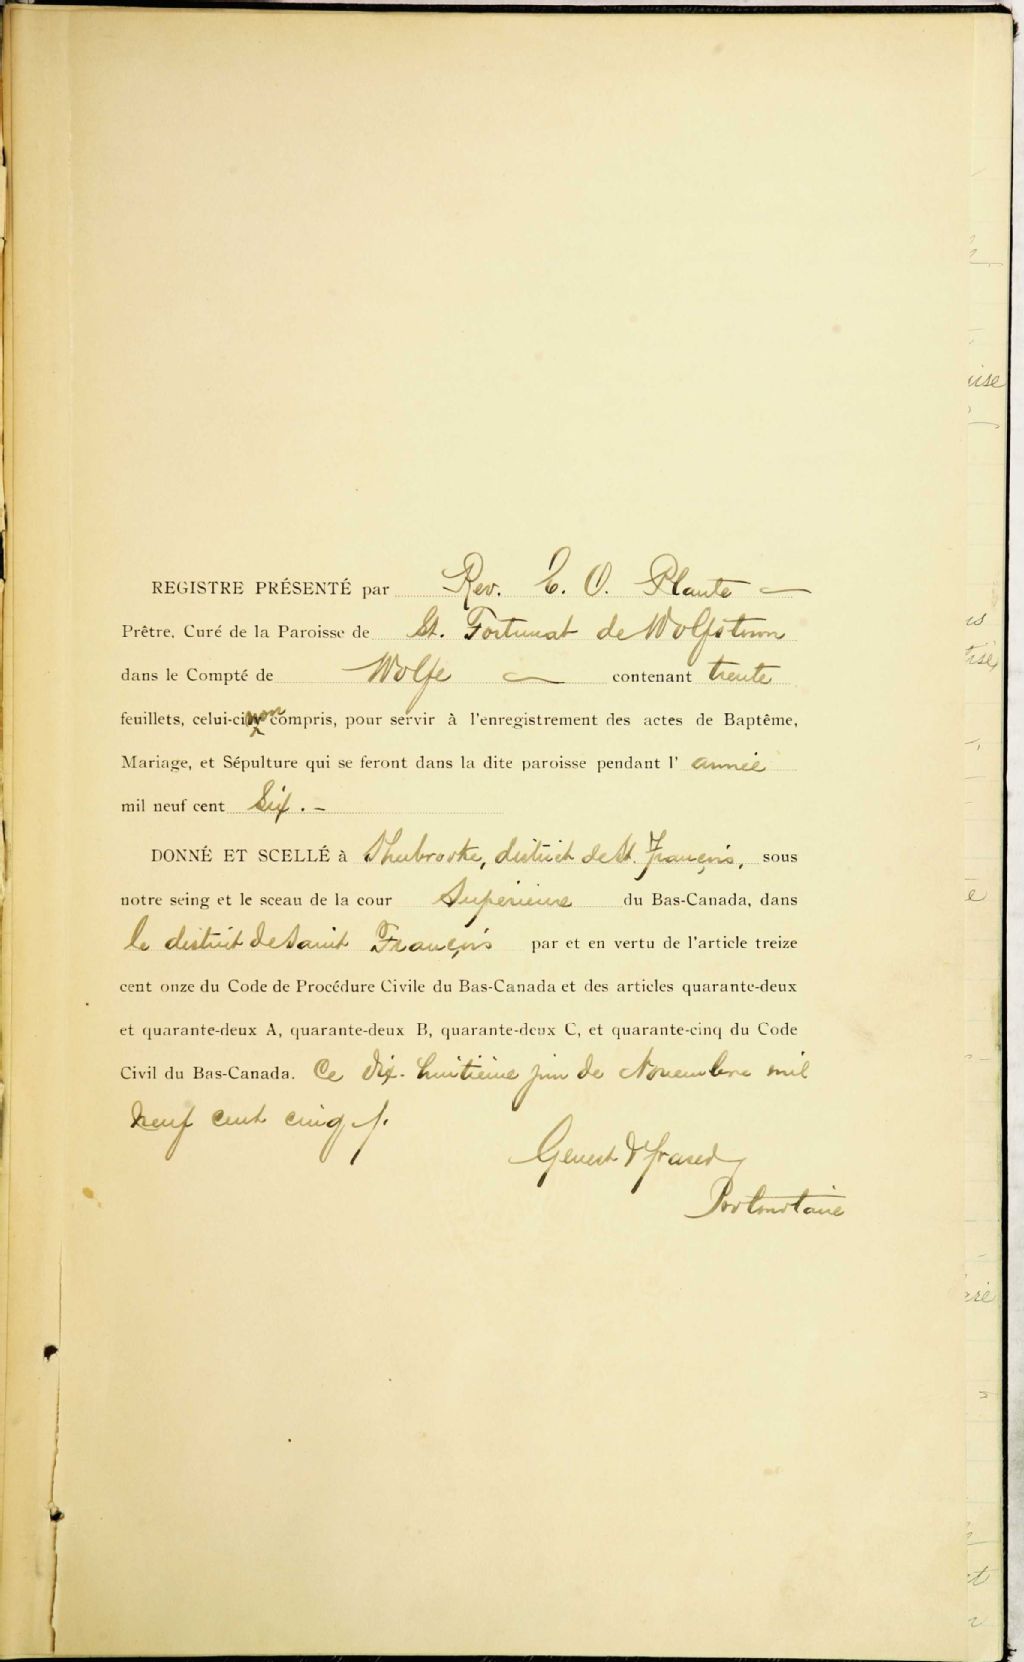 REGISTRE PRÉSENTÉ par Rev. E. O. Plante
Prêtre, Curé de la Paroisse de St. Fortunat de Wolfstown
dans le Compté de Wolfe contenant trente
feuillets, celui-ci non compris, pour servir à l'enregistrement des actes de Baptême,
Mariage, et Sépulture qui se feront dans la dite paroisse pendant l' année
mil neuf cent Six. -
DONNÉ ET SCELLÉ à Sherbrooke, district de St. François, sous
notre seing et le sceau de la cour Supérieure du Bas-Canada, dans
le district de Saint François par et en vertu de l'article treize
cent onze du Code de Procédure Civile du Bas-Canada et des articles quarante-deux
et quarante-deux A, quarante-deux B, quarante-deux C, et quarante-cinq du Code
Civil du Bas-Canada. Ce dix-huitième jour de Novembre mil
neuf cent cinq
Genest & Fraser
Protonotaire